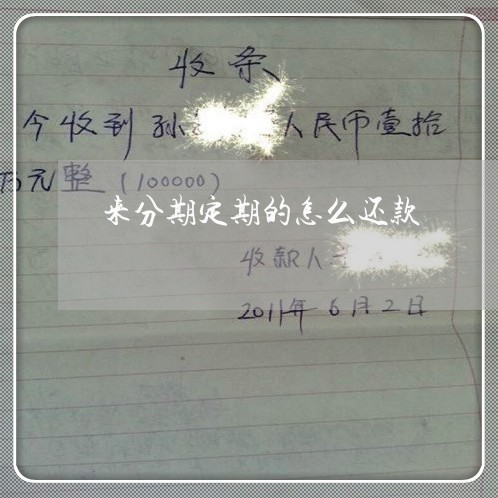 收条
今收到孙 人民币壹拾
万元整(100000)
来分期定期的怎么还款
收款人
2011年6月2日